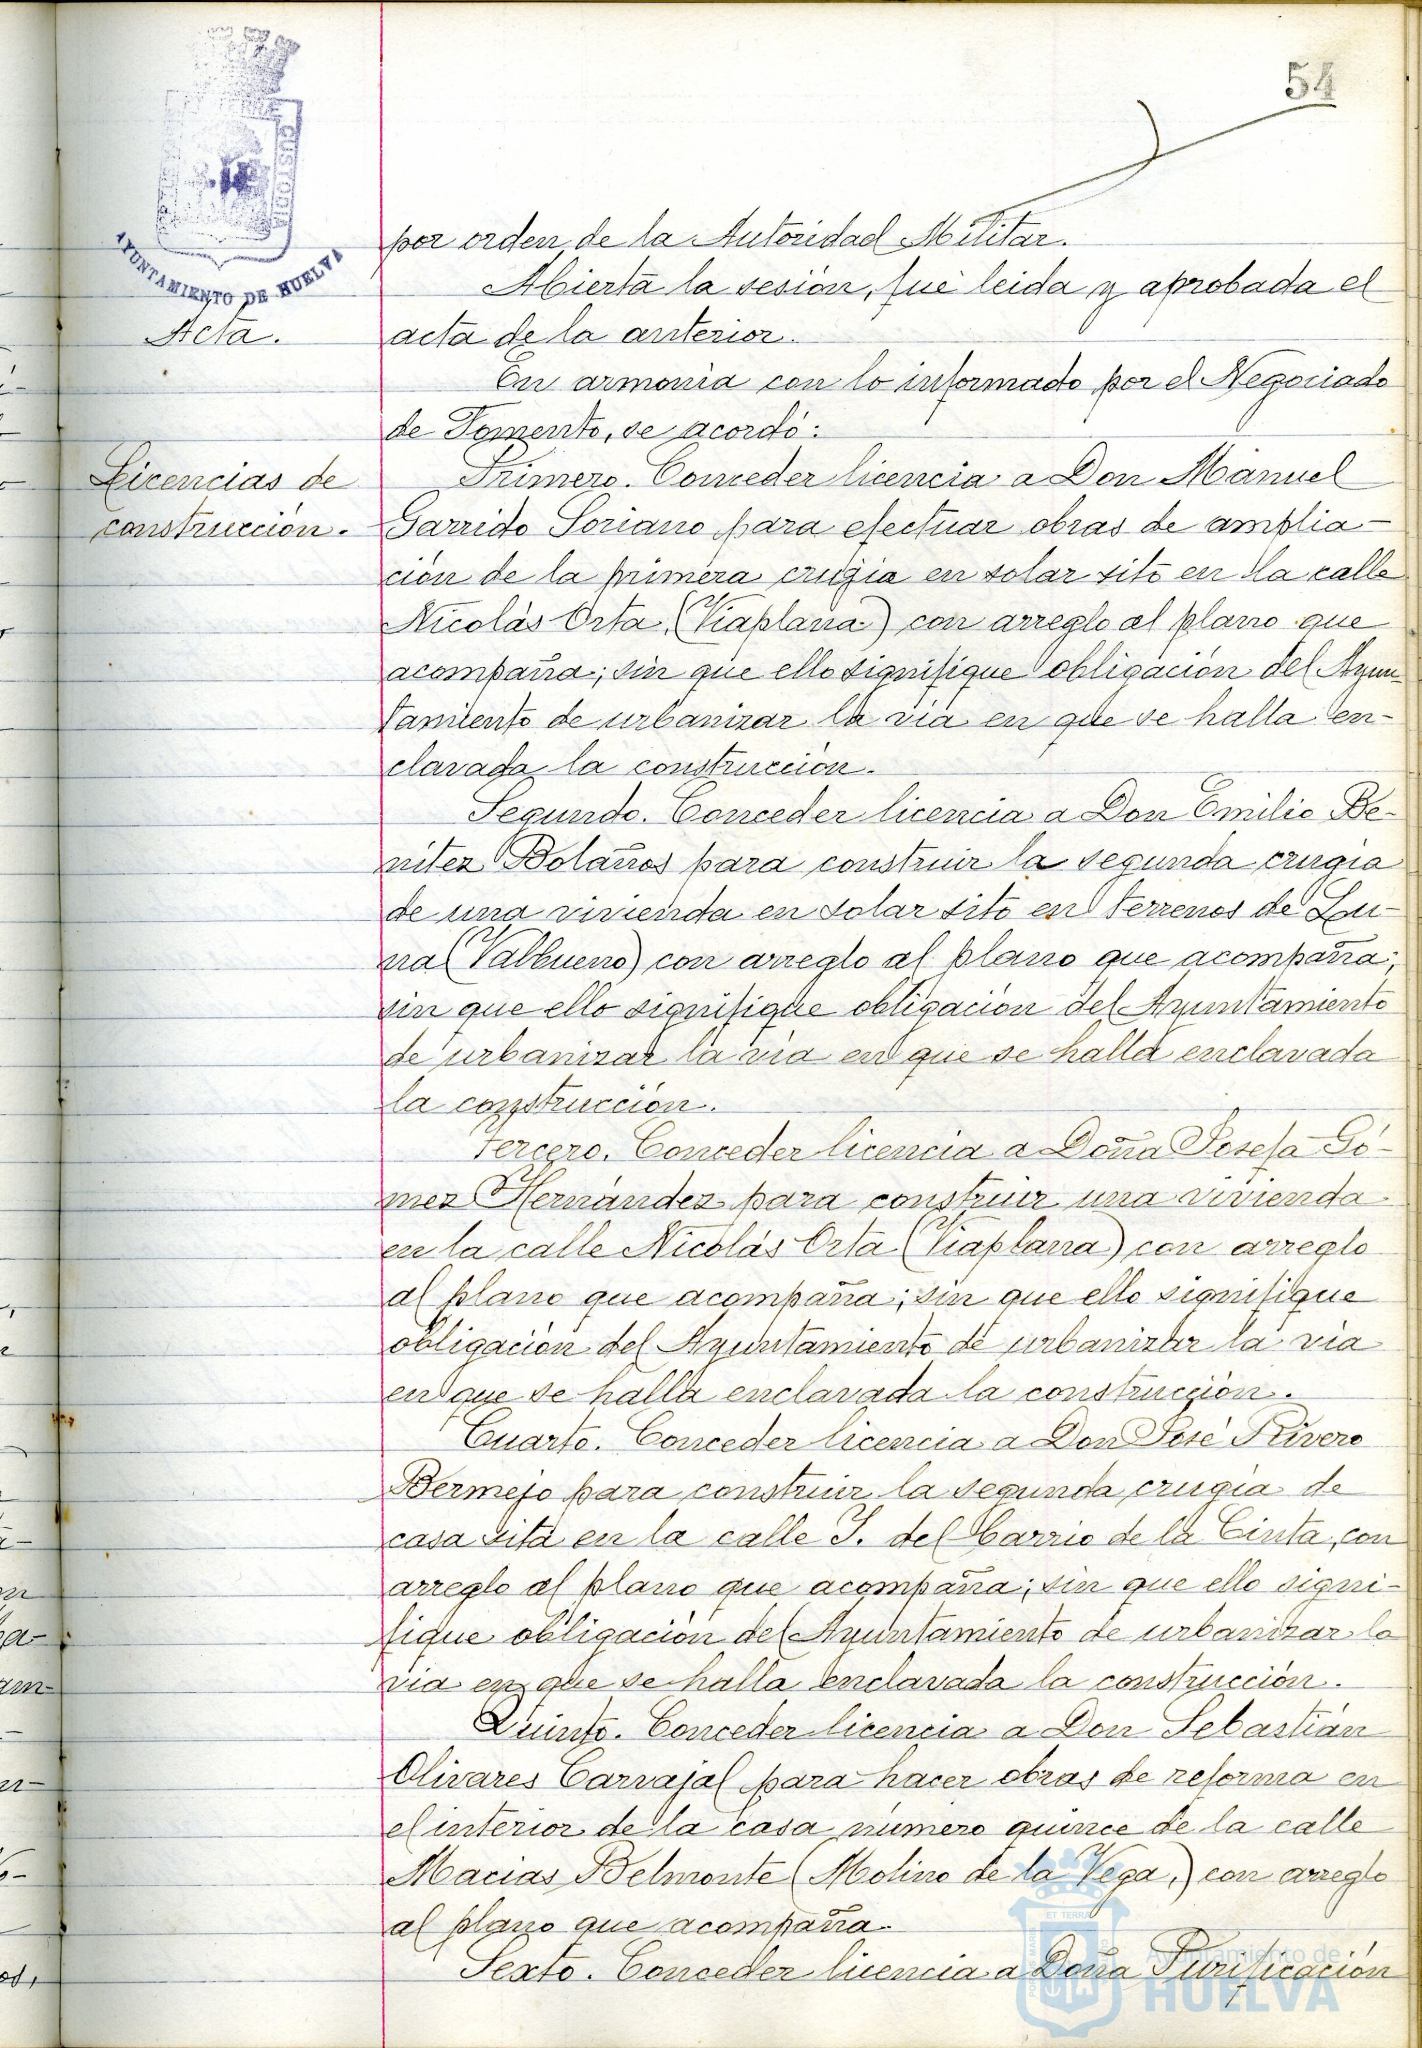 54
CUSTODIA
AYUNTAMIENTO DE HUELVA
por orden de la Autoridad Militar.
Abierta la sesión, fué leida y aprobada el
Acta.
acta de la anterior.
En armonía con lo informado por el Negociado
de Fomento, se acordó:
Licencias de
construcción.
Primero. Conceder licencia a Don Manuel
Garrido Soriano para efectuar obras de amplia-
ción de la primera crugía en solar sito en la calle
Nicolás Orta (Viaplana) con arreglo al plano que
acompaña; sin que ello signifique obligación del Ayun-
tamiento de urbanizar la vía en que se halla en-
clavada la construcción.
Segundo. Conceder licencia a Don Emilio Be-
nitez Bolaños para construir la segunda crugía
de una vivienda en solar sito en terrenos de Lu-
na (Valbueno) con arreglo al plano que acompaña;
sin que ello signifique obligación del Ayuntamiento
de urbanizar la vía en que se halla enclavada
la construcción.
Tercero. Conceder licencia a Doña Josefa Gó-
mez Hernández para construir una vivienda
en la calle Nicolás Orta (Viaplana) con arreglo
al plano que acompaña; sin que ello signifique
obligación del Ayuntamiento de urbanizar la vía
en que se halla enclavada la construcción.
Cuarto. Conceder licencia a Don José Rivero
Bermejo para construir la segunda crugía de
casa sita en la calle J. del barrio de la Cinta, con
arreglo al plano que acompaña; sin que ello signi-
fique obligación del Ayuntamiento de urbanizar la
vía en que se halla enclavada la construcción.
Quinto. Conceder licencia a Don Sebastián
Olivares Carvajal para hacer obras de reforma en
el interior de la casa número quince de la calle
Macías Belmonte (Molino de la Vega,) con arreglo
al plano que acompaña.
Sexto. Conceder licencia a Doña Purificación
Ayuntamiento de
HUELVA